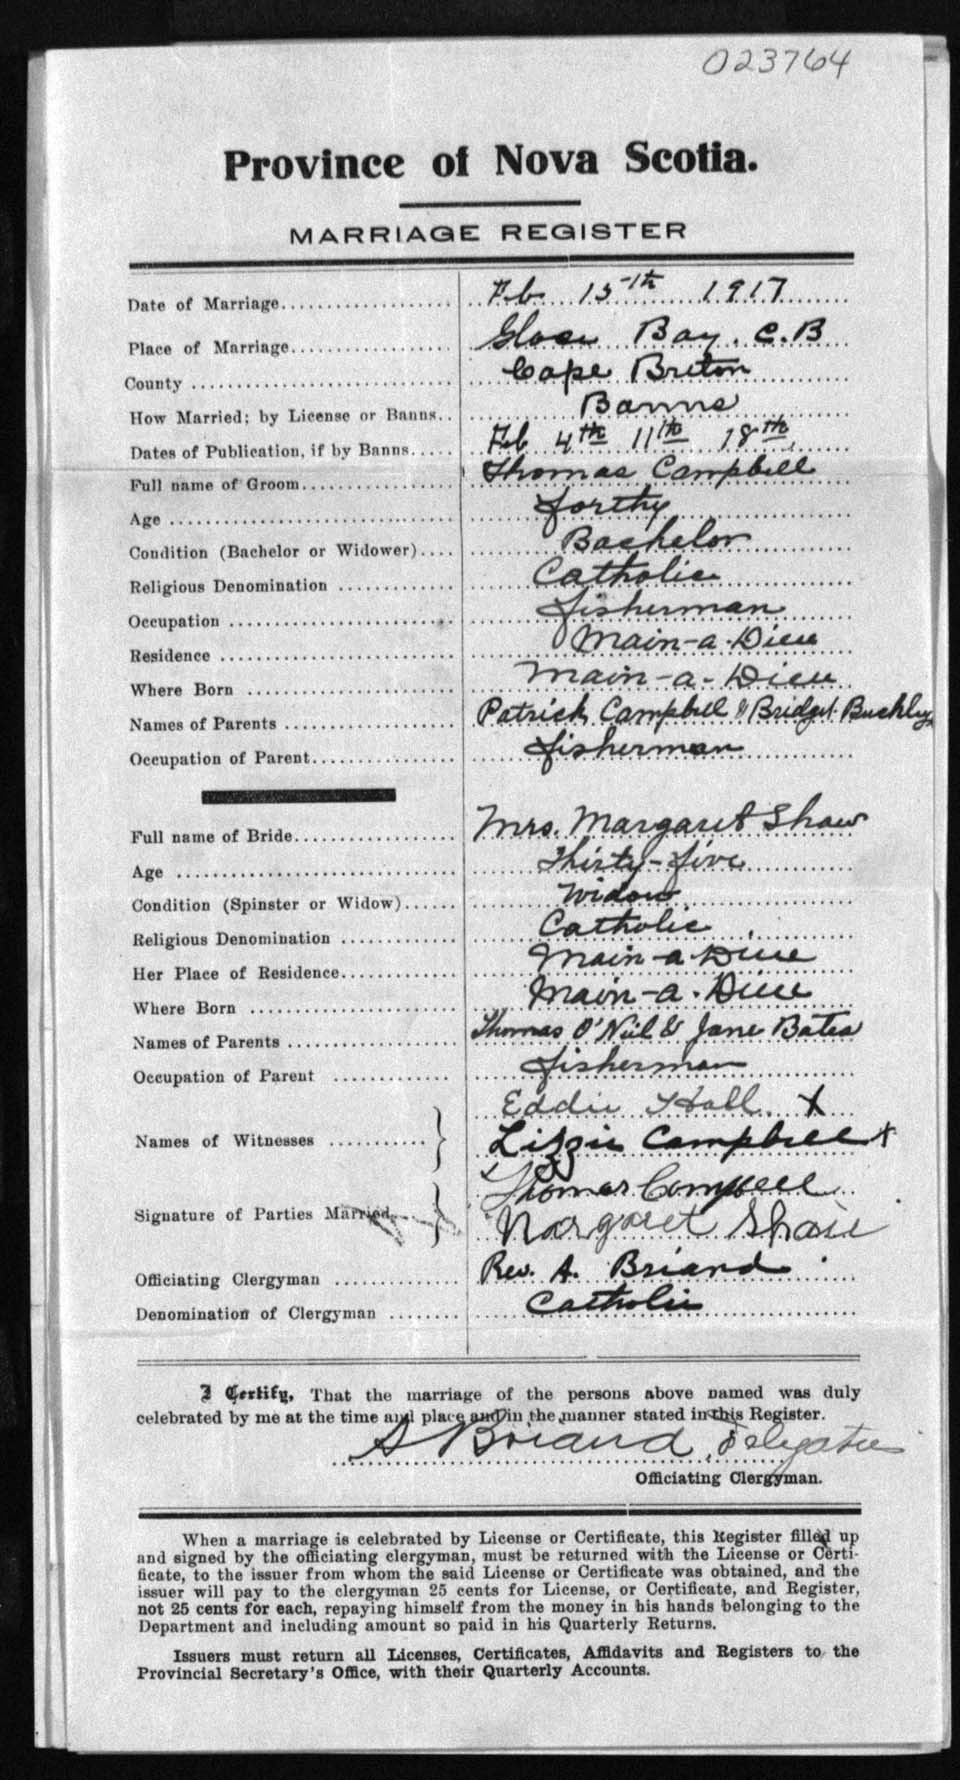 023764
Province of Nova Scotia.
MARRIAGE REGISTER
Date of Marriage Feb 15th 1917
Place of Marriage Glace Bay. C.B
County Cape Breton
How Married; by License or Banns Banns
Dates of Publication, if by Banns Feb 4th 11th 18th
Full name of Groom Thomas Campbell
Age forthy
Condition (Bachelor or Widower) Bachelor
Religious Denomination Catholic
Occupation fisherman
Residence Main-a-Dieu
Where Born Main-a-Dieu
Names of Parents Patrick Campbell & Bridget Buckley
Occupation of Parent fisherman
Full name of Bride Mrs. Margaret Shaw
Age Thirty-five
Condition (Spinster or Widow) Widow
Religious Denomination Catholic
Her Place of Residence Main-a-Dieu
Where Born Main-a-Dieu
Names of Parents Thomas O'Neil & Jane Bates
Occupation of Parent fisherman
Eddie Hall X
Names of Witnesses Lizzie Campbell X
Thomas Campbell
Signature of Parties Married Margaret Shaw
Officiating Clergyman Rev. A. Briand
Denomination of Clergyman Catholic
I Certify, That the marriage of the persons above named was duly
celebrated by me at the time and place and in the manner stated in this Register.
A Briand,
Officiating Clergyman.
When a marriage is celebrated by License or Certificate, this Register filled up
and signed by the officiating clergyman, must be returned with the License or Certi-
ficate, to the issuer from whom the said License or Certificate was obtained, and the
issuer will pay to the clergyman 25 cents for License, or Certificate, and Register,
not 25 cents for each, repaying himself from the money in his hands belonging to the
Department and including amount so paid in his Quarterly Returns.
Issuers must return all Licenses, Certificates, Affidavits and Registers to the
Provincial Secretary's Office, with their Quarterly Accounts.